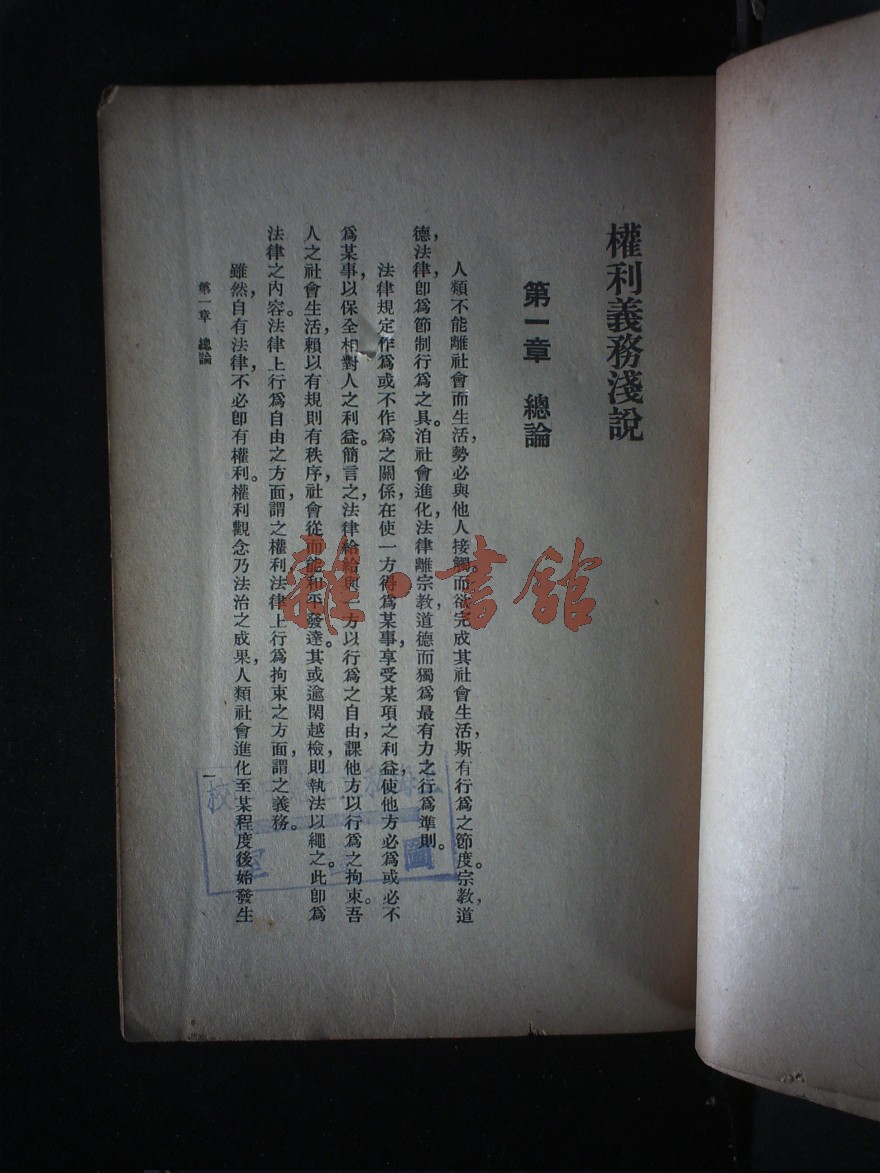 權利義務淺說
第一章　總論
人類不能離社會而生活，勢必與他人接觸。而欲完成其社會生活，斯有行爲之節度。宗教道
德，法律，卽爲節制行爲之具。洎社會進化，法律離宗教道德而獨爲最有力之行爲準則。
法律規定作爲或不作爲之關係，在使一方得爲某事，享受某項之利益，使他方必爲或必不
爲某事，以保全相對人之利益。簡言之，法律給給與一方以行爲之自由，課他方以行爲之拘束。吾
人之社會生活，賴以有規則有秩序，社會從而能和平發達。其或逾閑越檢，則執法以繩之。此卽爲
法律之內容。法律上行爲自由之方面，謂之權利，法律上行爲拘束之方面，謂之義務。
雖然，自有法律，不必卽有權利。權利觀念乃法治之成果，人類社會進化至某程度後始發生
第一章　總論
一
雜·書館
校
圖
室